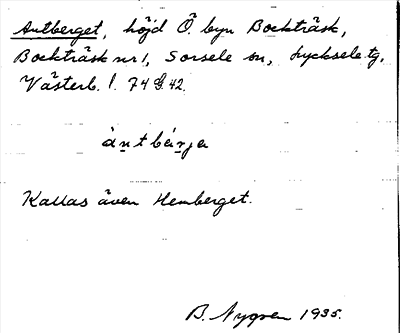 Antberget, höjd Ö. byn Bockträsk,
Bockträsk nr 1, Sorsele sn, Lycksele tg,
Västerb. l. 74 G. 42.
än̲tbär̲ja
Kallas även Hemberget.
B. Nygren 1935.